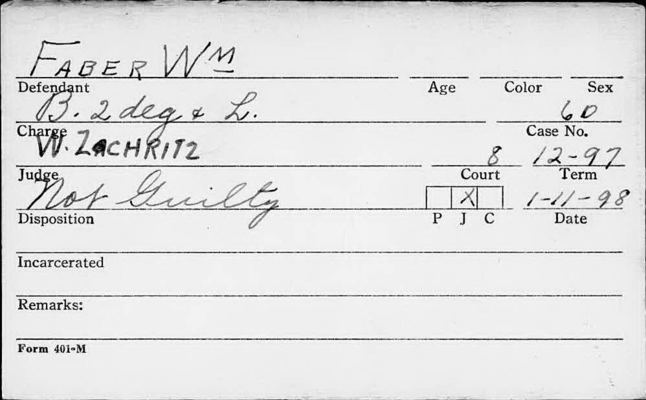 FABER WM
Defendant Age Color Sex
B. 2 deg & L. 60
Charge Case No.
W. ZACHRITZ 8 12-97
Judge Court Term
Not Guilty X 1-11-98
Disposition P J C Date
Incarcerated
Remarks:
Form 401-M